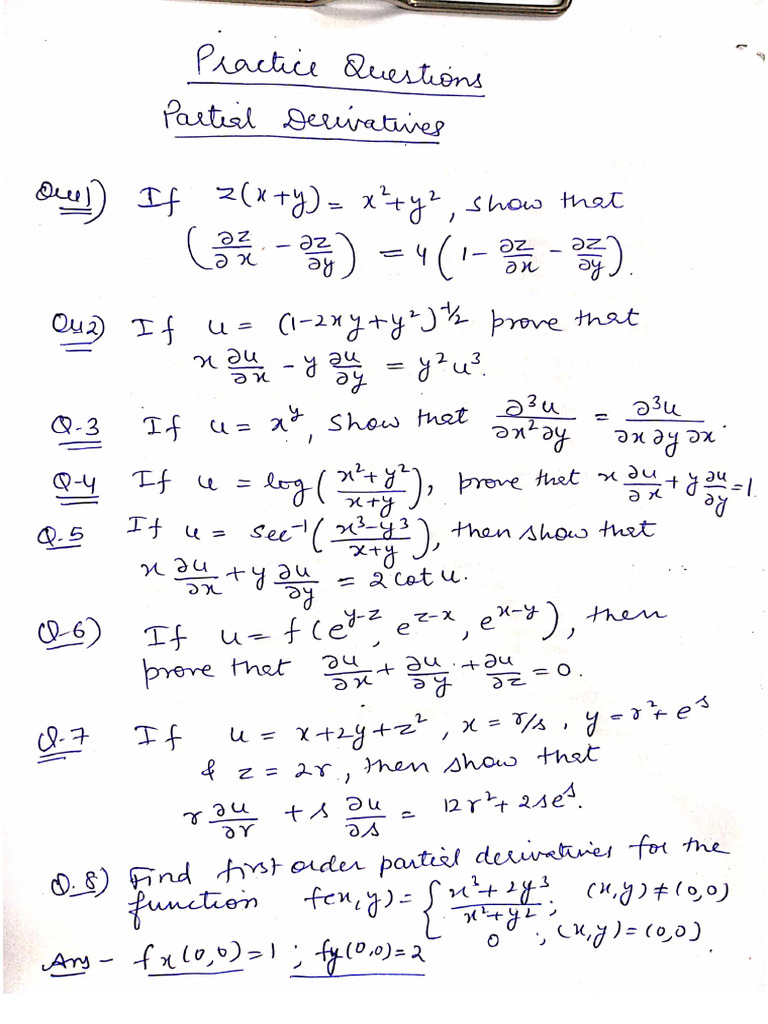 Practice Questions
Partial Derivatives
Qu1) If z(x+y) = x²+y², show that
(∂z/∂x - ∂z/∂y) = 4(1 - ∂z/∂x - ∂z/∂y).
Qu2) If u = (1-2xy+y²)^-1/2 prove that
x ∂u/∂x - y ∂u/∂y = y²u³.
Q-3 If u = x^y, show that ∂³u/∂x²∂y = ∂³u/∂x∂y∂x.
Q-4 If u = log(x²+y²/x+y), prove that x ∂u/∂x + y ∂u/∂y = 1.
Q.5 If u = sec⁻¹(x³-y³/x+y), then show that
x ∂u/∂x + y ∂u/∂y = 2 cot u.
Q-6) If u = f(e^y-z, e^z-x, e^x-y), then
prove that ∂u/∂x + ∂u/∂y + ∂u/∂z = 0.
Q-7 If u = x+2y+z², x = r/s, y = r²+e^s
& z = 2r, then show that
r ∂u/∂r + s ∂u/∂s = 12r²+2se^s.
Q.8) Find first order partial derivatives for the
function f(x,y) = { x³+2y³/x²+y² ; (x,y)≠(0,0)
0 ; (x,y)=(0,0).
Ans - fx(0,0)=1 ; fy(0,0)=2